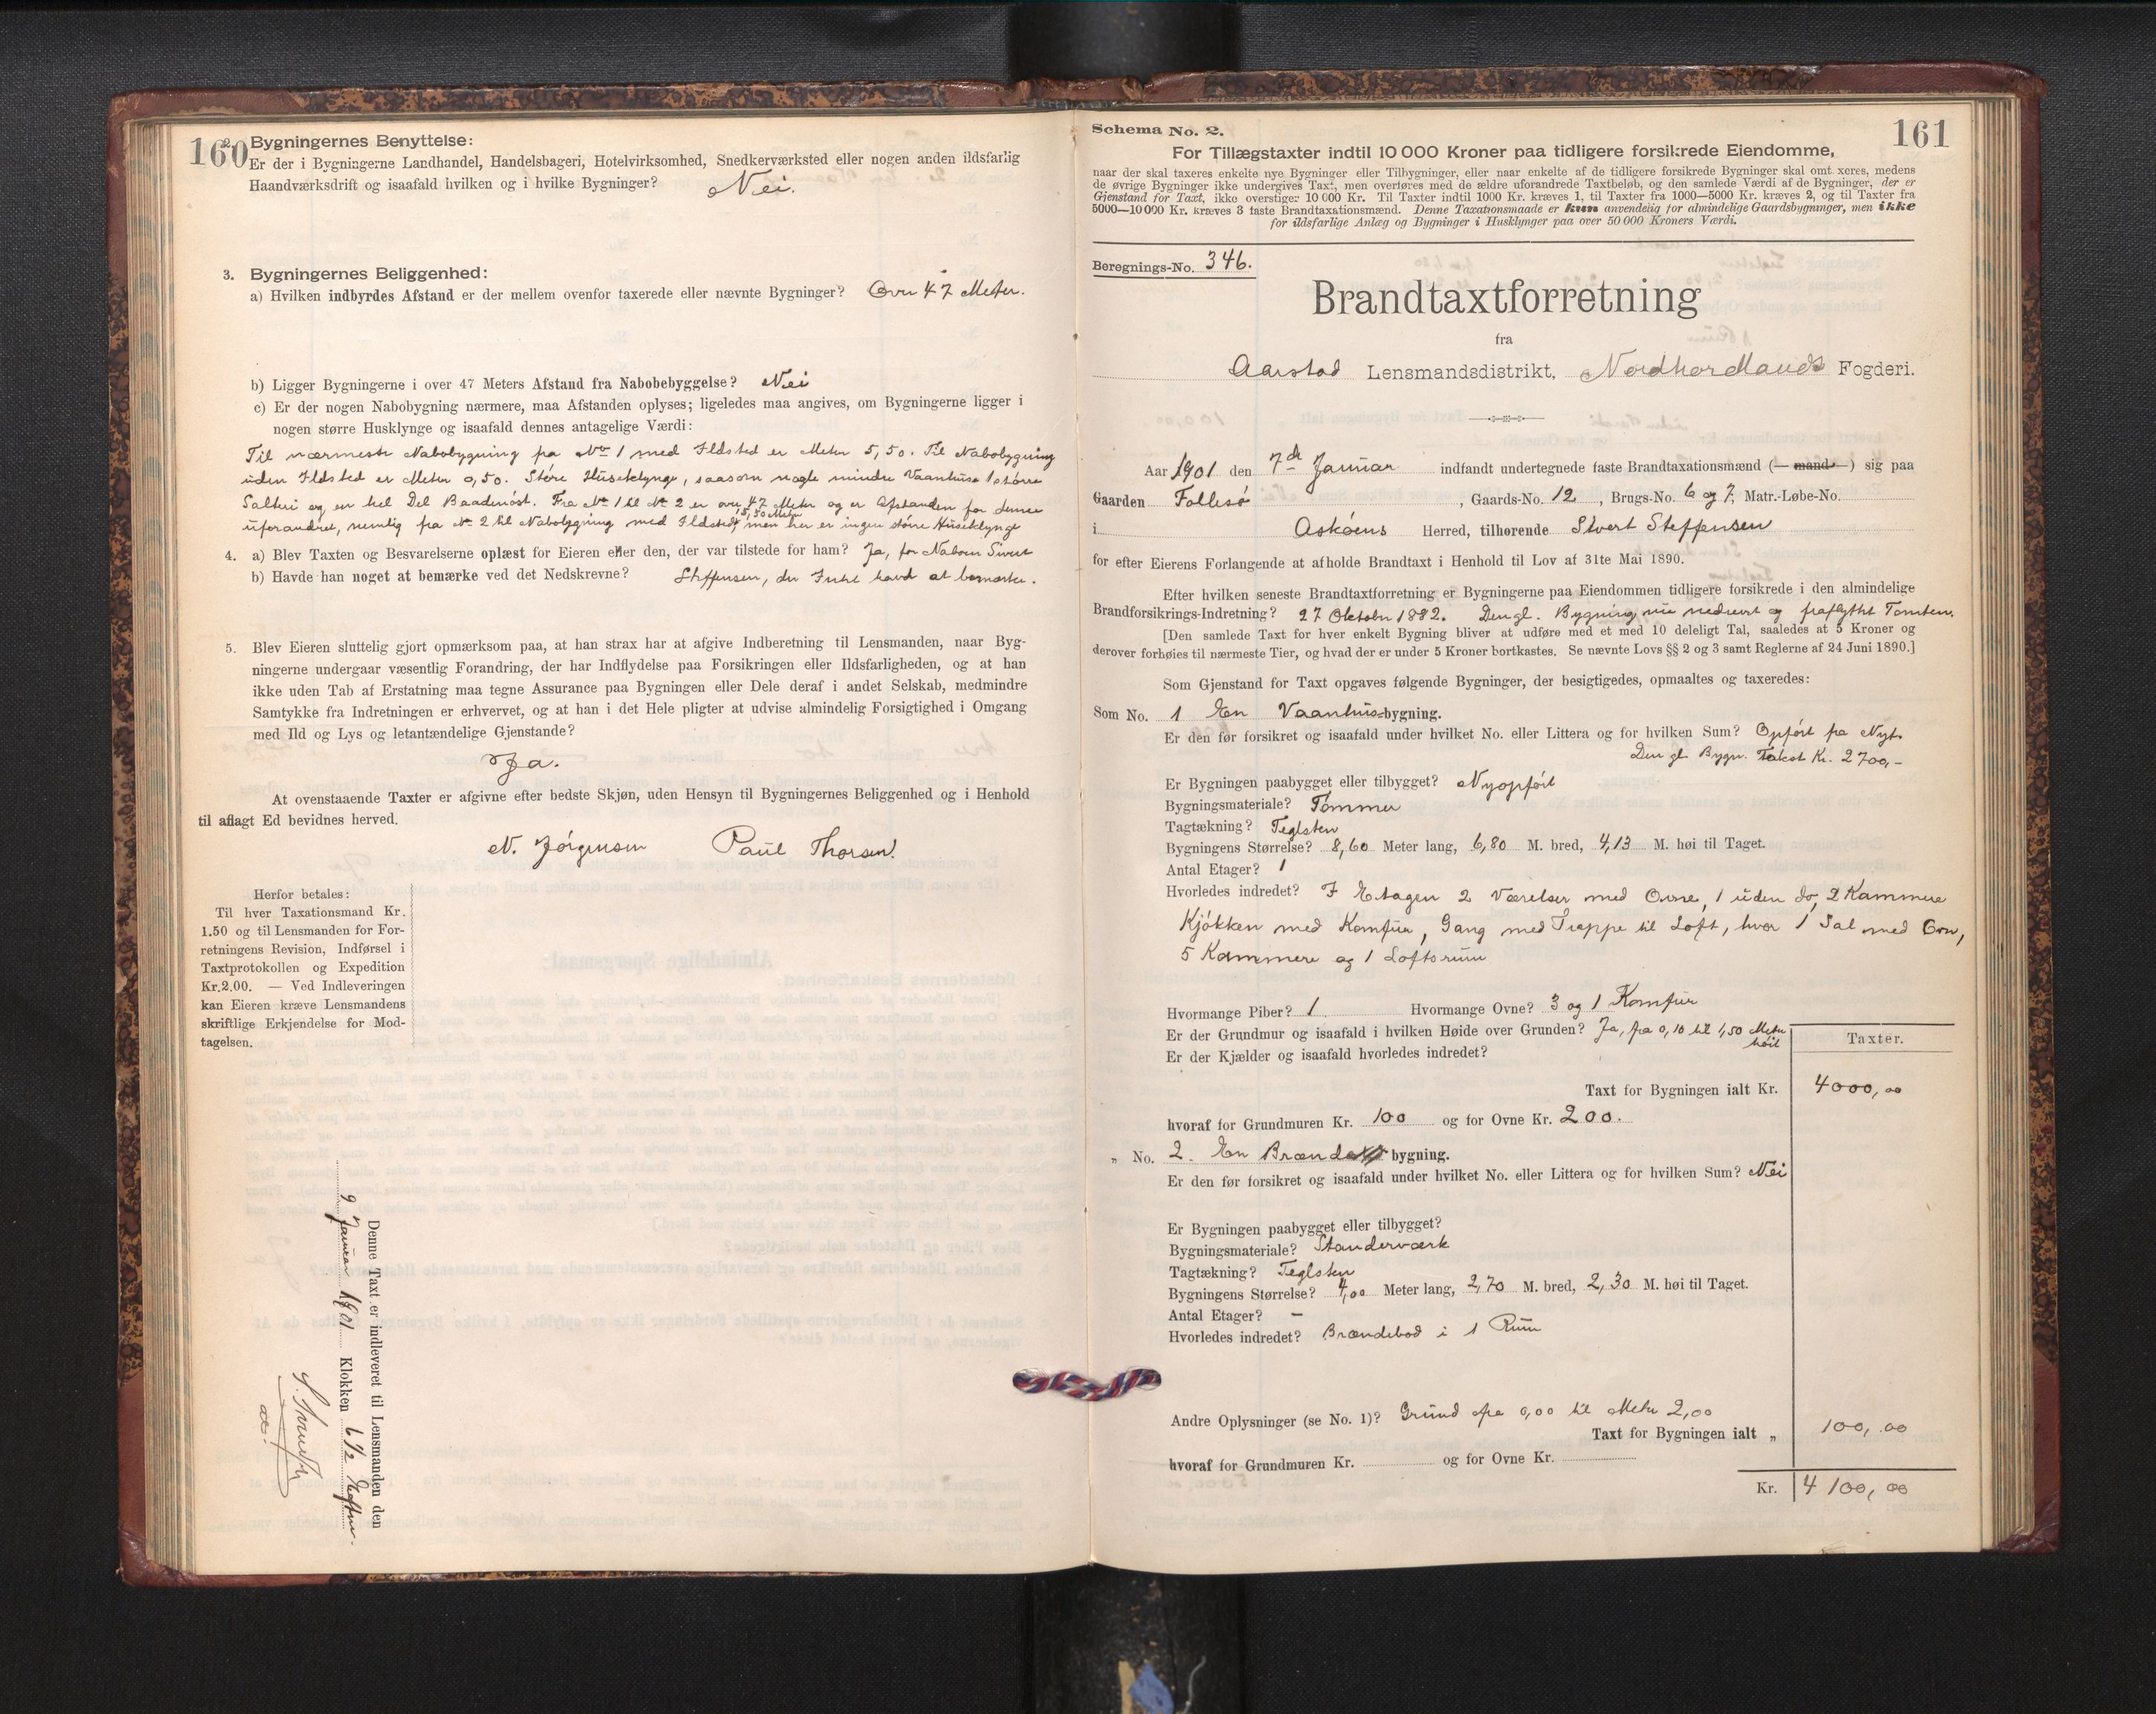 160
2. Bygningernes Benyttelse:
Er der i Bygningerne Landhandel, Handelsbageri, Hotelvirksomhed, Snedkerværksted eller nogen anden ildsfarlig
Haandværksdrift og isaafald hvilken og i hvilke Bygninger? Nei.
3. Bygningernes Beliggenhed:
a) Hvilken indbyrdes Afstand er der mellem ovenfor taxerede eller nævnte Bygninger? Over 47 Meter.
b) Ligger Bygningerne i over 47 Meters Afstand fra Nabobebyggelse? Nei
c) Er der nogen Nabobygning nærmere, maa Afstanden oplyses; ligeledes maa angives, om Bygningerne ligger i
nogen større Husklynge og isaafald dennes antagelige Værdi:
Til nærmeste Nabobygning fra No 1 med Ildsted er Meter 5,50. Til Nabobygning
uden Ildsted er Meter 0,50. Störe Huseklynge, saasom nogle mindre Vaanhuse 1 større
Salteri og en hel Del Baadenöst. Fra No 1 til No 2 er over 47 Meter og er Afstanden for denne
uforandret, nemlig fra No 2 til Nabobygning med Ildsted 15,50 Meter, men her er ingen större Huseklynge
4. a) Blev Taxten og Besvarelserne oplæst for Eieren eller den, der var tilstede for ham? Ja, for Naboen Sivert
b) Havde han noget at bemærke ved det Nedskrevne? Steffensen, der Intet havd at bemærke.
5. Blev Eieren sluttelig gjort opmærksom paa, at han strax har at afgive Indberetning til Lensmanden, naar Byg-
ningerne undergaar væsentlig Forandring, der har Indflydelse paa Forsikringen eller Ildsfarligheden, og at han
ikke uden Tab af Erstatning maa tegne Assurance paa Bygningen eller Dele deraf i andet Selskab, medmindre
Samtykke fra Indretningen er erhvervet, og at han i det Hele pligter at udvise almindelig Forsigtighed i Omgang
med Ild og Lys og letantændelige Gjenstande?
Ja.
At ovenstaaende Taxter er afgivne efter bedste Skjøn, uden Hensyn til Bygningernes Beliggenhed og i Henhold
til aflagt Ed bevidnes herved.
N. Jörgensen Paul Thorsen.
Herfor betales:
Til hver Taxationsmand Kr.
1.50 og til Lensmanden for For-
retningens Revision, Indførsel i
Taxtprotokollen og Expedition
Kr.2.00. — Ved Indleveringen
kan Eieren kræve Lensmandens
skriftlige Erkjendelse for Mod-
tagelsen.
Denne Taxt er indleveret til Lensmanden den
9 Januar 1901 Klokken 6 1/2 Efterm.
161
Schema No. 2.
For Tillægstaxter indtil 10 000 Kroner paa tidligere forsikrede Eiendomme,
naar der skal taxeres enkelte nye Bygninger eller Tilbygninger, eller naar enkelte af de tidligere forsikrede Bygninger skal omtaxeres, medens
de øvrige Bygninger ikke undergives Taxt, men overføres med de ældre uforandrede Taxtbeløb, og den samlede Værdi af de Bygninger, der er
Gjenstand for Taxt, ikke overstiger 10 000 Kr. Til Taxter indtil 1000 Kr. kræves 1, til Taxter fra 1000—5000 Kr. kræves 2, og til Taxter fra
5000—10 000 Kr. kræves 3 faste Brandtaxationsmænd. Denne Taxationsmaade er kun anvendelig for almindelige Gaardsbygninger, men ikke
for ildsfarlige Anlæg og Bygninger i Husklynger paa over 50 000 Kroners Værdi.
Beregnings-No. 346.
Brandtaxtforretning
fra
Aarstad Lensmandsdistrikt, Nordhordlands Fogderi.
Aar 1901 den 7de Januar indfandt undertegnede faste Brandtaxationsmænd (— mand —) sig paa
Gaarden Follesö, Gaards-No. 12, Brugs-No. 6 og 7, Matr.-Løbe-No.
i Asköens Herred, tilhørende Sivert Steffensen
for efter Eierens Forlangende at afholde Brandtaxt i Henhold til Lov af 31te Mai 1890.
Efter hvilken seneste Brandtaxtforretning er Bygningerne paa Eiendommen tidligere forsikrede i den almindelige
Brandforsikrings-Indretning? 27 Oktober 1882. Den gl. Bygning nu nedrevet og fraflyttet Tomten.
[Den samlede Taxt for hver enkelt Bygning bliver at udføre med et med 10 deleligt Tal, saaledes at 5 Kroner og
derover forhøies til nærmeste Tier, og hvad der er under 5 Kroner bortkastes. Se nævnte Lovs §§ 2 og 3 samt Reglerne af 24 Juni 1890.]
Som Gjenstand for Taxt opgaves følgende Bygninger, der besigtigedes, opmaaltes og taxeredes:
Som No. 1 En Vaanhus-bygning.
Er den før forsikret og isaafald under hvilket No. eller Littera og for hvilken Sum? Opfört fra Nyt.
Den gl. Bygn. Takst Kr. 2700,-
Er Bygningen paabygget eller tilbygget? Nyopfört
Bygningsmateriale? Tömmer
Tagtækning? Teglsten
Bygningens Størrelse? 8,60 Meter lang, 6,80 M. bred, 4,13 M. høi til Taget.
Antal Etager? 1
Hvorledes indredet? I Etagen 2 Værelser med Ovne, 1 uden do, 2 Kammere
Kjökken med Komfur, Gang med Trappe til Loft, hvor 1 Sal med Ovn,
5 Kammere og 1 Loftsrum
Hvormange Piber? 1 Hvormange Ovne? 3 og 1 Komfur
Er der Grundmur og isaafald i hvilken Høide over Grunden? Ja, fra 0,10 til 1,50 Meter höit
Er der Kjælder og isaafald hvorledes indredet?
Taxter.
Taxt for Bygningen ialt Kr. 4000,00
hvoraf for Grundmuren Kr. 100 og for Ovne Kr. 200.
„ No. 2. En Brænde bygning.
Er den før forsikret og isaafald under hvilket No. eller Littera og for hvilken Sum? Nei
Er Bygningen paabygget eller tilbygget?
Bygningsmateriale? Standerværk
Tagtækning? Teglsten
Bygningens Størrelse? 4,00 Meter lang, 2,70 M. bred, 2,30 M. høi til Taget.
Antal Etager? –
Hvorledes indredet? Brændebod i 1 Rum
Andre Oplysninger (se No. 1)? Grund fra 0,00 til Meter 2,00
Taxt for Bygningen ialt „ 100,00
hvoraf for Grundmuren Kr. og for Ovne Kr.
Kr. 4100,00